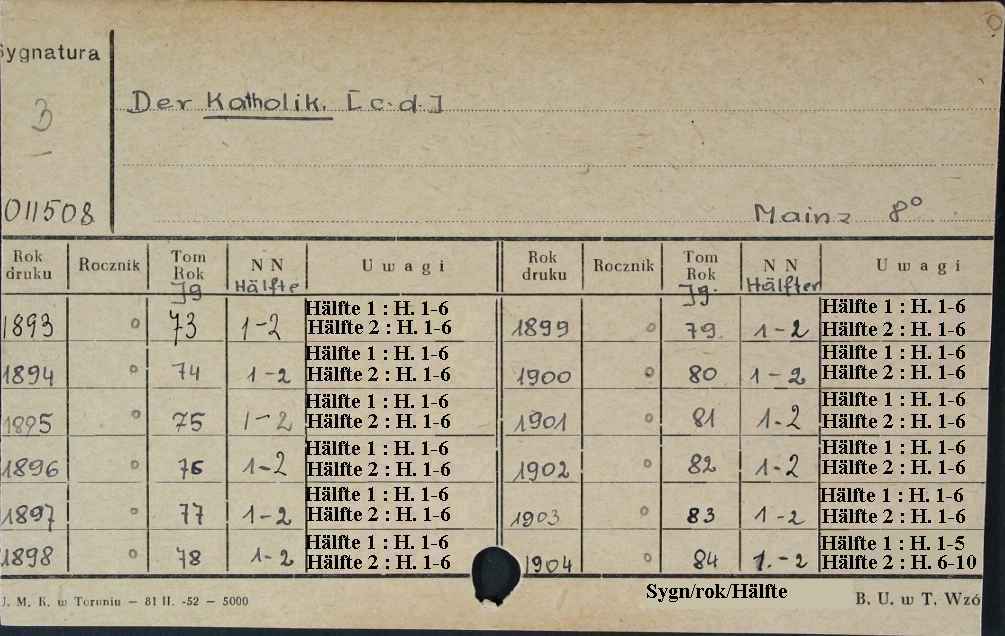 Sygnatura
3
Der Katholik. [c.d.]
011508
Mainz 8°
Rok druku Rocznik Tom Rok Jg N N Hälfte Uwagi Rok druku Rocznik Tom Rok Jg. N N Hälften Uwagi
1893 ○ 73 1-2 Hälfte 1 : H. 1-6 Hälfte 2 : H. 1-6 1899 ○ 79 1-2 Hälfte 1 : H. 1-6 Hälfte 2 : H. 1-6
1894 ○ 74 1-2 Hälfte 1 : H. 1-6 Hälfte 2 : H. 1-6 1900 ○ 80 1-2 Hälfte 1 : H. 1-6 Hälfte 2 : H. 1-6
1895 ○ 75 1-2 Hälfte 1 : H. 1-6 Hälfte 2 : H. 1-6 1901 ○ 81 1-2 Hälfte 1 : H. 1-6 Hälfte 2 : H. 1-6
1896 ○ 76 1-2 Hälfte 1 : H. 1-6 Hälfte 2 : H. 1-6 1902 ○ 82 1-2 Hälfte 1 : H. 1-6 Hälfte 2 : H. 1-6
1897 ○ 77 1-2 Hälfte 1 : H. 1-6 Hälfte 2 : H. 1-6 1903 ○ 83 1-2 Hälfte 1 : H. 1-6 Hälfte 2 : H. 1-6
1898 ○ 78 1-2 Hälfte 1 : H. 1-6 Hälfte 2 : H. 1-6 1904 ○ 84 1.-2 Hälfte 1 : H. 1-5 Hälfte 2 : H. 6-10
Sygn/rok/Hälfte
U. M. K. w Toruniu – 81 II. -52 – 5000 B. U. w T. Wzó